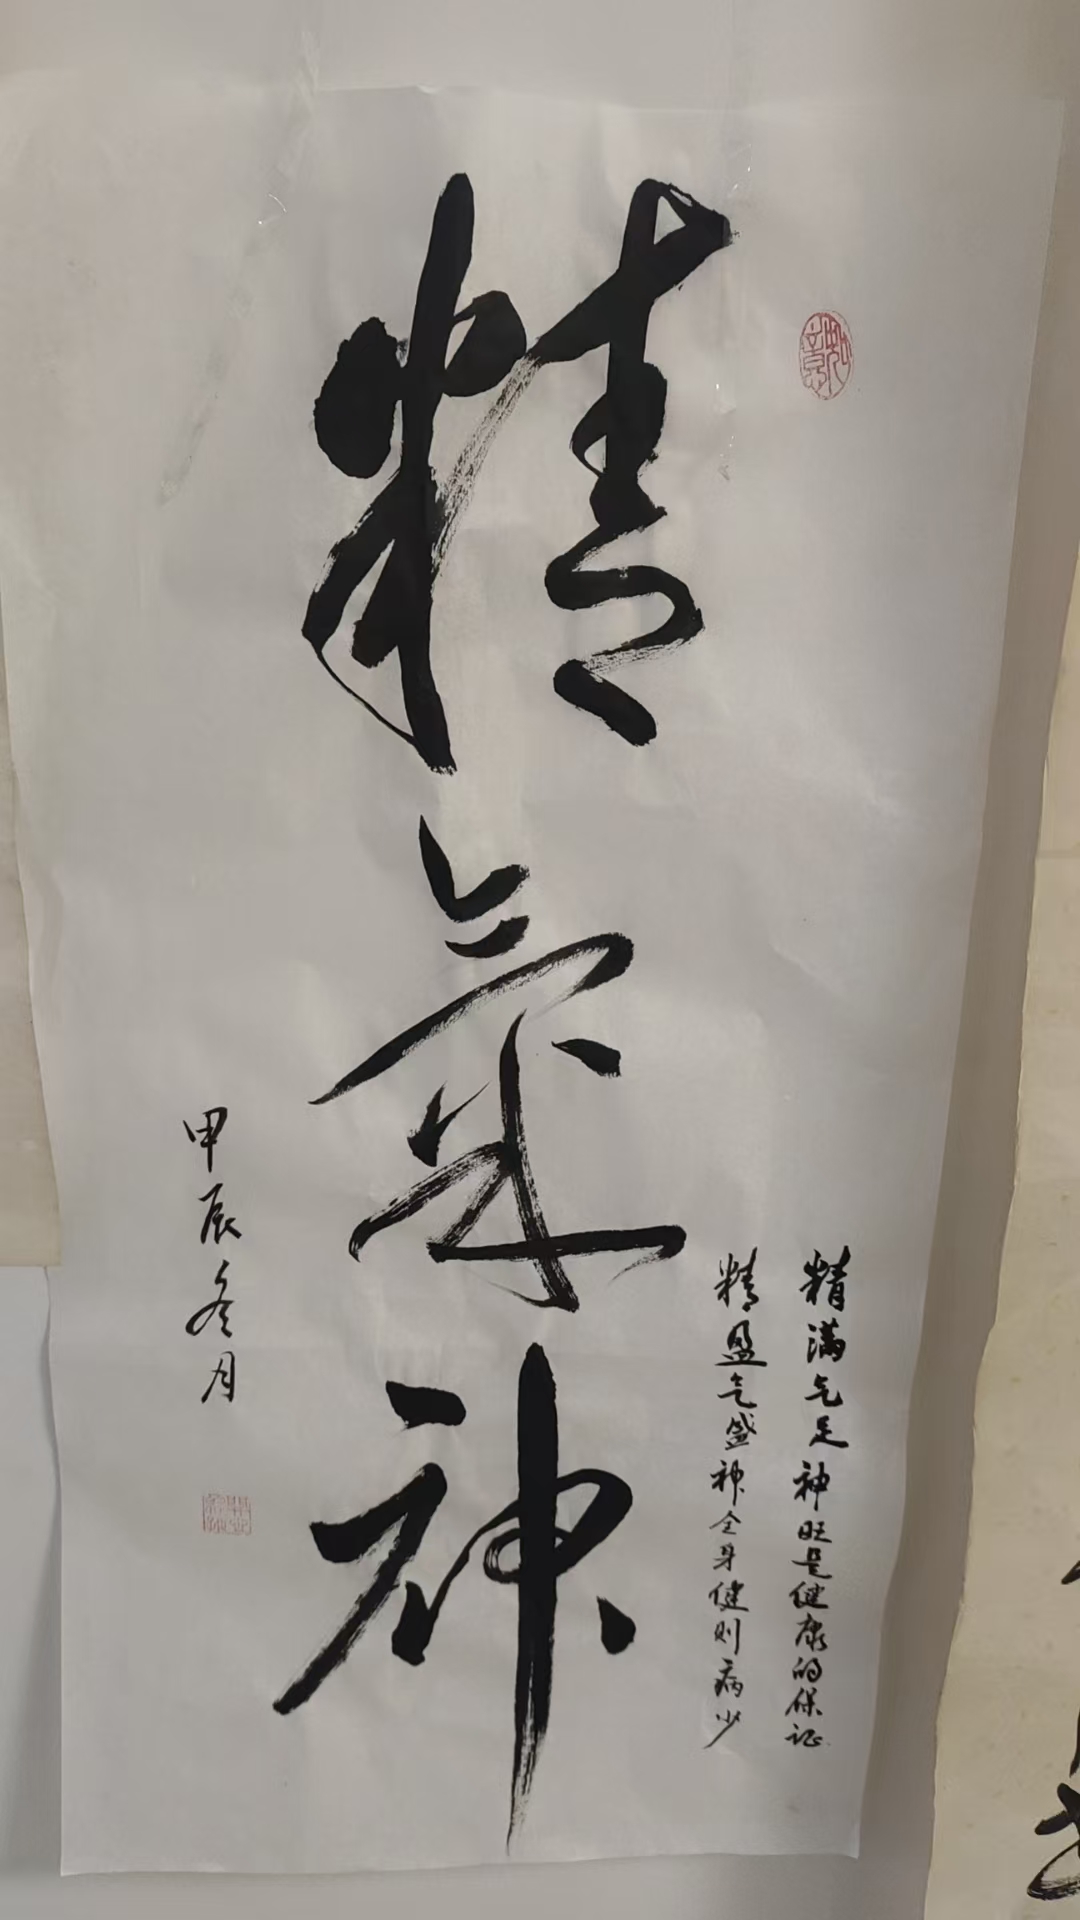 精氣神
精满气足神旺是健康的保证
精盈气盛神全身健则病少
甲辰冬月
如意